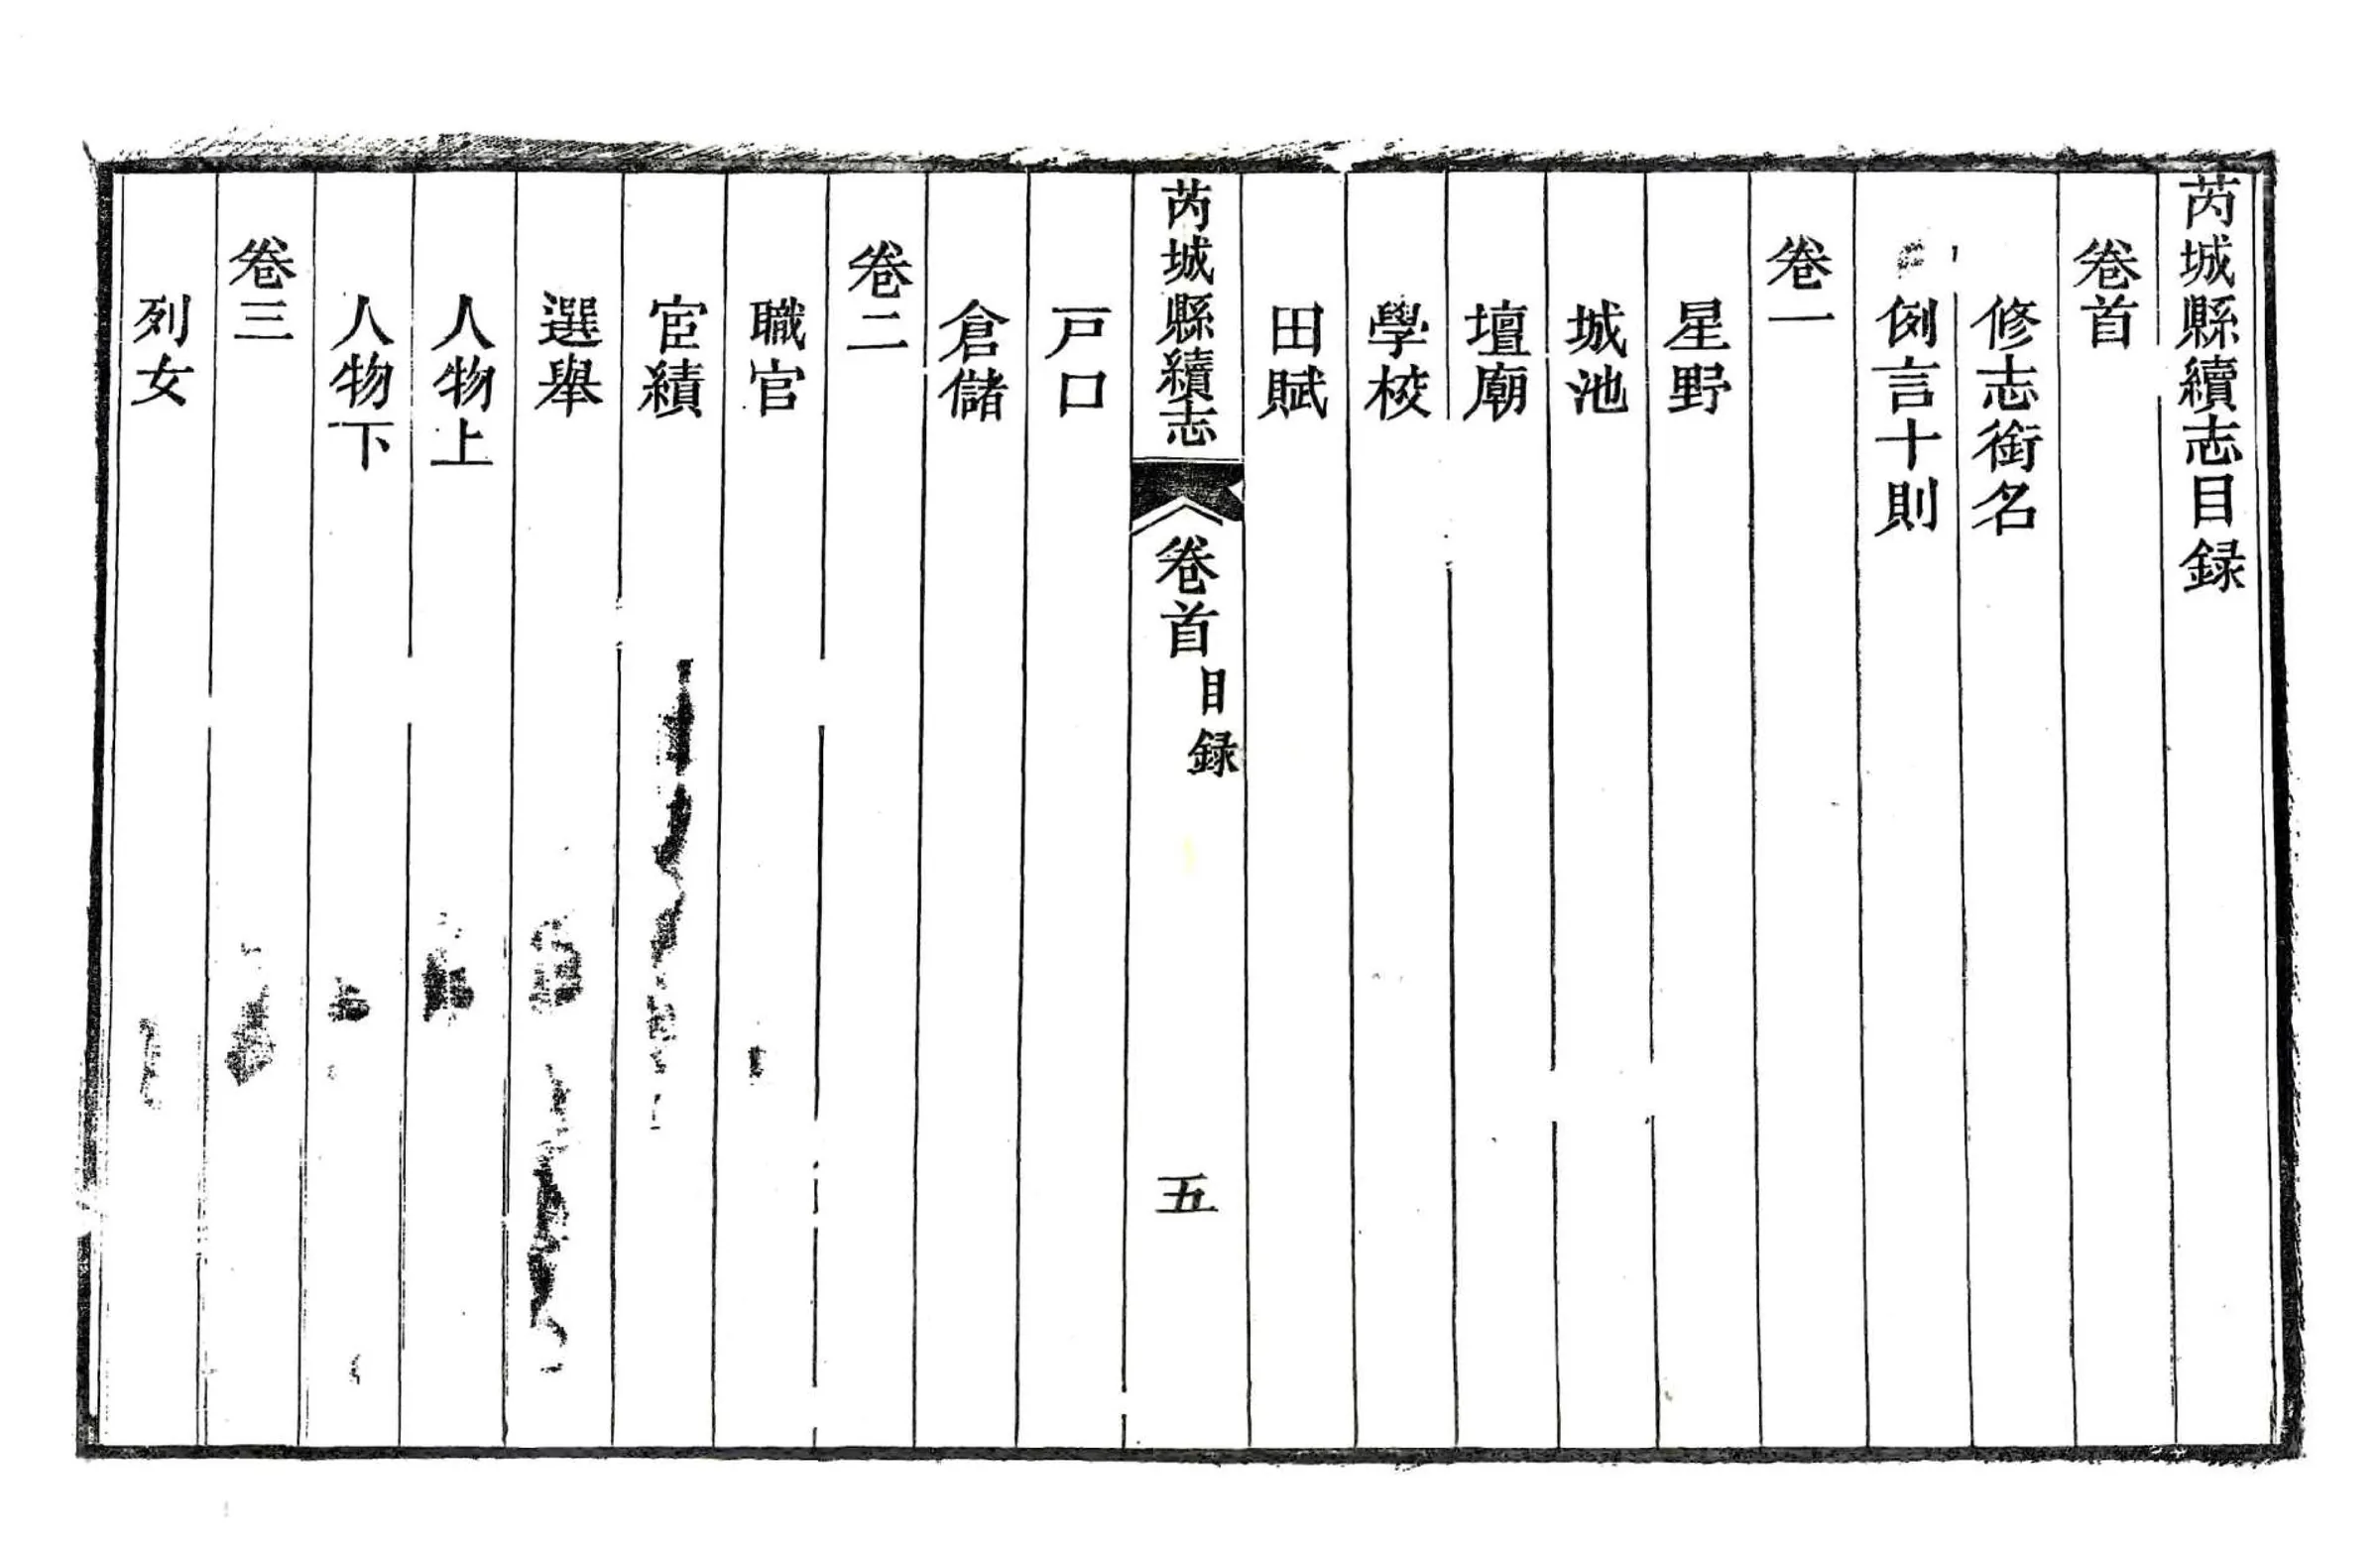 芮城縣續志目録
卷首
修志銜名
例言十則
卷一
星野
城池
壇廟
學校
田賦
芮城縣續志
卷首
目録
五
戸口
倉儲
卷二
職官
宦績
選舉
人物上
人物下
卷三
列女